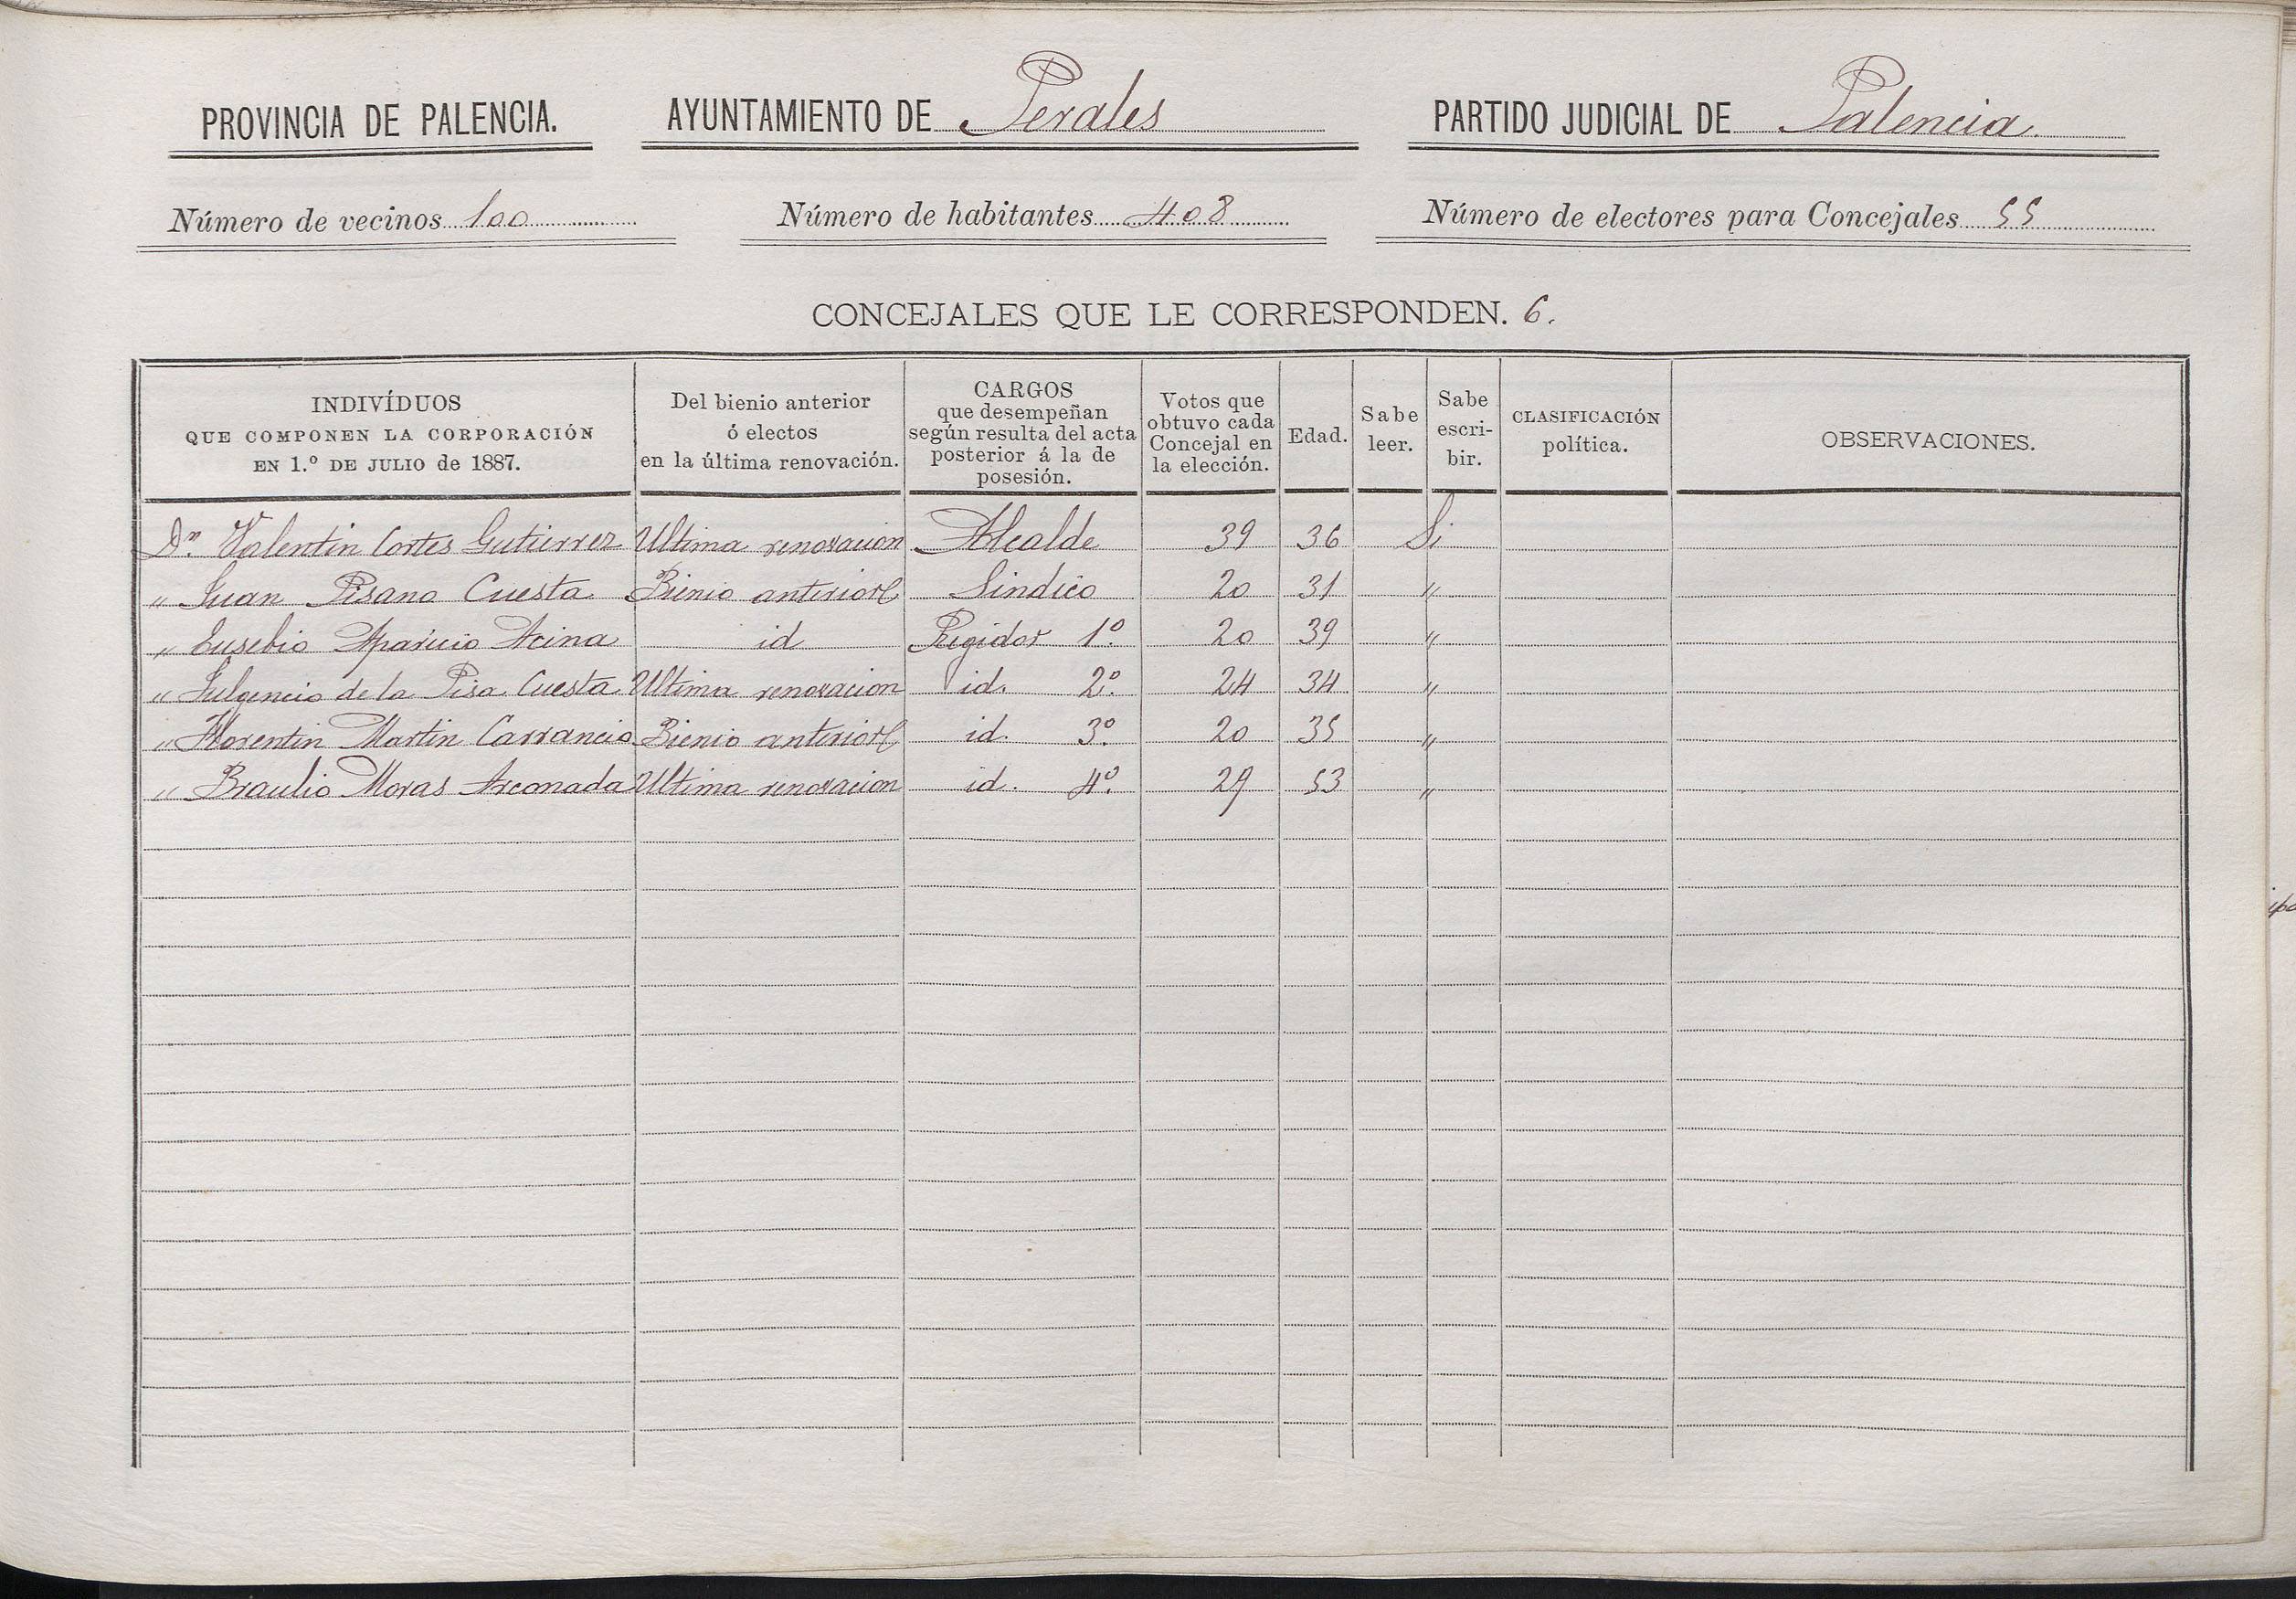 PROVINCIA DE PALENCIA. AYUNTAMIENTO DE Perales PARTIDO JUDICIAL DE Palencia.
Número de vecinos 100 Número de habitantes 408 Número de electores para Concejales 55
CONCEJALES QUE LE CORRESPONDEN. 6.
INDIVÍDUOS QUE COMPONEN LA CORPORACIÓN EN 1.º DE JULIO de 1887. Del bienio anterior ó electos en la última renovación. CARGOS que desempeñan según resulta del acta posterior á la de posesión. Votos que obtuvo cada Concejal en la elección. Edad. Sabe leer. Sabe escri-bir. CLASIFICACIÓN política. OBSERVACIONES.
Dn. Valentin Cortes Gutierrez Ultima renovacion Alcalde 39 36 Si
" Juan Pisano Cuesta Bienio anterior Sindico 20 31 "
" Eusebio Aparicio Acina id Regidor 1º. 20 39 "
" Fulgencio de la Pisa Cuesta Ultima renovacion id. 2º. 24 34 "
" Florentin Martin Carrancio Bienio anterior id. 3º. 20 35 "
" Braulio Moras Arconada Ultima renovacion id. 4º. 29 53 "